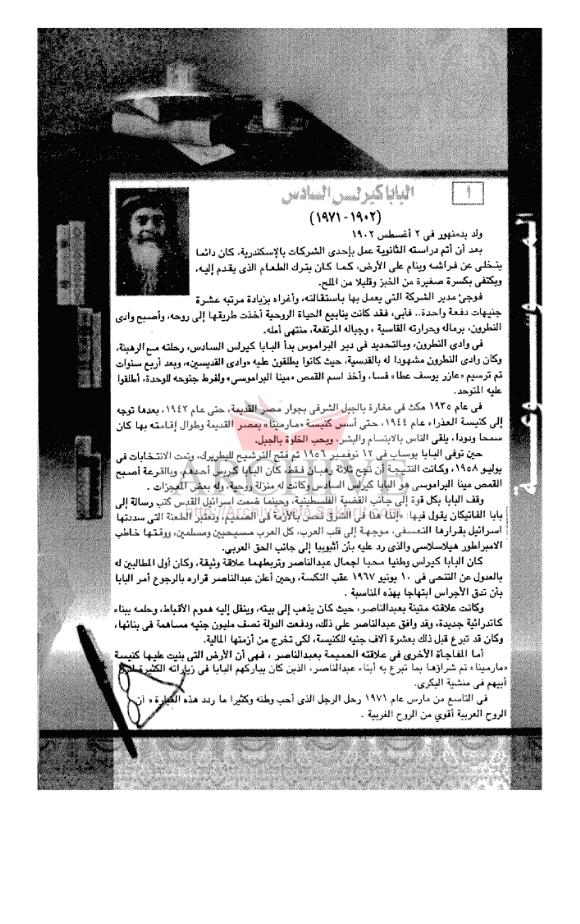 ١
البابا كيرلس السادس
(١٩٠٢-١٩٧١)
ولد بدمنهور فى ٢ أغسطس ١٩٠٢
بعد أن أتم دراسته الثانوية عمل بإحدى الشركات بالإسكندرية، كان دائما
يتخلى عن فراشه وينام على الأرض، كما كان يترك الطعام الذى يقدم إليه،
ويكتفى بكسرة صغيرة من الخبز وقليلا من الملح.
فوجئ مدير الشركة التى يعمل بها باستقالته، وأغراه بزيادة مرتبه عشرة
جنيهات دفعة واحدة.. فأبى، فقد كانت ينابيع الحياة الروحية أخذت طريقها إلى روحه، وأصبح وادى
النطرون، برماله وحرارته القاسية ، وجباله المرتفعة، منتهى أمله.
فى وادى النطرون، وبالتحديد فى دير البراموس بدأ البابا كيرلس السادس، رحلته مع الرهبنة،
وكان وادى النطرون مشهودا له بالقدسية، حيث كانوا يطلقون عليه «وادى القديسين»، وبعد أربع سنوات
تم ترسيم «عازر يوسف عطا» قسا، وأخذ اسم القمص «مينا البراموسى» ولفرط جنوحه للوحدة، أطلقوا
عليه المتوحد.
فى عام ١٩٣٥ مكث فى مغارة بالجبل الشرقى بجوار مصر القديمة، حتى عام ١٩٤٢، بعدها توجه
إلى كنيسة العذراء عام ١٩٤٤، حتى أسس كنيسة «مارمينا» بمصر القديمة وطوال إقامته بها كان
سمحا ودودا، يلقى الناس بالابتسام والبشر، ويحب الخلوة بالجبل.
حين توفى البابا يوساب فى ١٣ نوفمبر ١٩٥٦ تم فتح الترشيح للبطريرك، وتمت الانتخابات فى
يوليو ١٩٥٨، وكانت النتيجة أن نجح ثلاثة رهبان فقط، كان البابا كيرلس أحدهم، وبالقرعة أصبح
القمص مينا البراموسى هو البابا كيرلس السادس وكانت له منزلة روحية، وله بعض المعجزات .
وقف البابا بكل قوة إلى جانب القضية الفلسطينية، وحينما ضمت اسرائيل القدس كتب رسالة إلى
بابا الفاتيكان يقول فيها: «إننا هنا فى الشرق نحس بالأزمة فى الصميم، ونعتبر الطعنة التى سددتها
اسرائيل بقرارها التعسفى، موجهة إلى قلب العرب، كل العرب مسيحيين ومسلمين، ووقتها خاطب
الامبراطور هيلاسلاسى والذى رد عليه بأن أثيوبيا إلى جانب الحق العربى.
كان البابا كيرلس وطنيا محبا لجمال عبدالناصر وتربطهما علاقة وثيقة، وكان أول المطالبين له
بالعدول عن التنحى فى ١٠ يونيو ١٩٦٧ عقب النكسة، وحين أعلن عبدالناصر قراره بالرجوع أمر البابا
بأن تدق الأجراس ابتهاجا بهذه المناسبة .
وكانت علاقته متينة بعبدالناصر، حيث كان يذهب إلى بيته، وينقل إليه هموم الأقباط، وحلمه ببناء
كاتدرائية جديدة، وقد وافق عبدالناصر على ذلك، ودفعت الدولة نصف مليون جنيه مساهمة فى بنائها،
وكان قد تبرع قبل ذلك بعشرة آلاف جنيه للكنيسة، لكى تخرج من أزمتها المالية.
أما المفاجأة الأخرى فى علاقته الحميمة بعبدالناصر ، فهى أن الأرض التى بنيت عليها كنيسة
«مارمينا» تم شراؤها بما تبرع به أبناء عبدالناصر، الذين كان يباركهم البابا فى زياراته الكثيرة
أبيهم فى منشية البكرى.
فى التاسع من مارس عام ١٩٧١ رحل الرجل الذى أحب وطنه وكثيرا ما ردد هذه العبارة « أن
الروح العربية أقوي من الروح الغربية .
الموسوعة
ARCHIVE